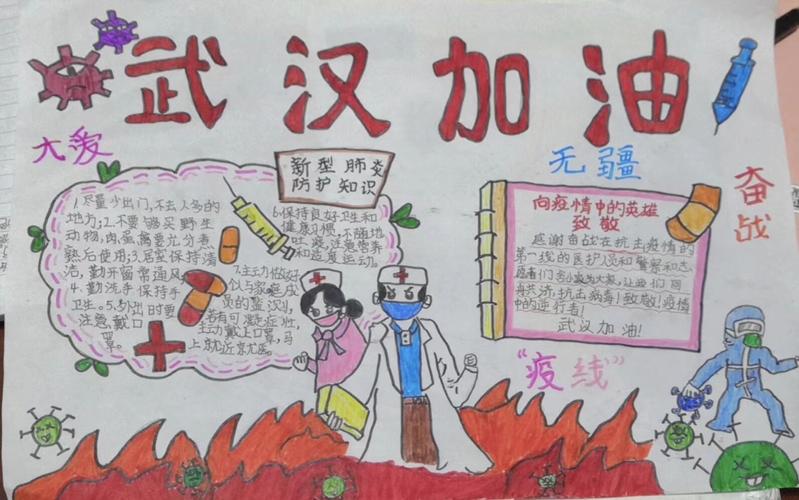 武汉加油
大爱
无疆
奋战
新型肺炎
防护知识
1.尽量少出门,不去人多的
地方;2.不要够买野生
动物,肉蛋禽要充分煮
熟后使用;3.居室保持清
洁,勤开窗常通风
4.勤洗手保持手
卫生。5.外出时要
注意戴口
罩。
6.保持良好卫生和
健康习惯,不随地
吐痰,注意营养
和适度运动。
7.主动做好
以与家庭成
员的
若有可疑症状,
主动戴上口罩,马
上就近就医。
向疫情中的英雄
致敬
感谢奋战在抗击疫情的
第一线的医护人员和警察和志
愿者们 让我们同
舟共济,抗击病毒!致敬!疫情
中的逆行者!
武汉加油!
“疫线”